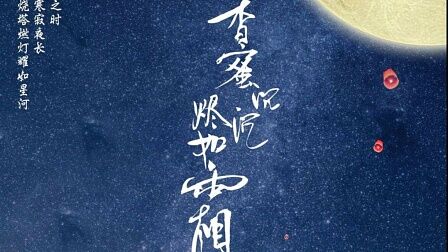 香蜜
沉沉
烬如霜
之时
寒寂夜长
烧塔燃灯耀如星河